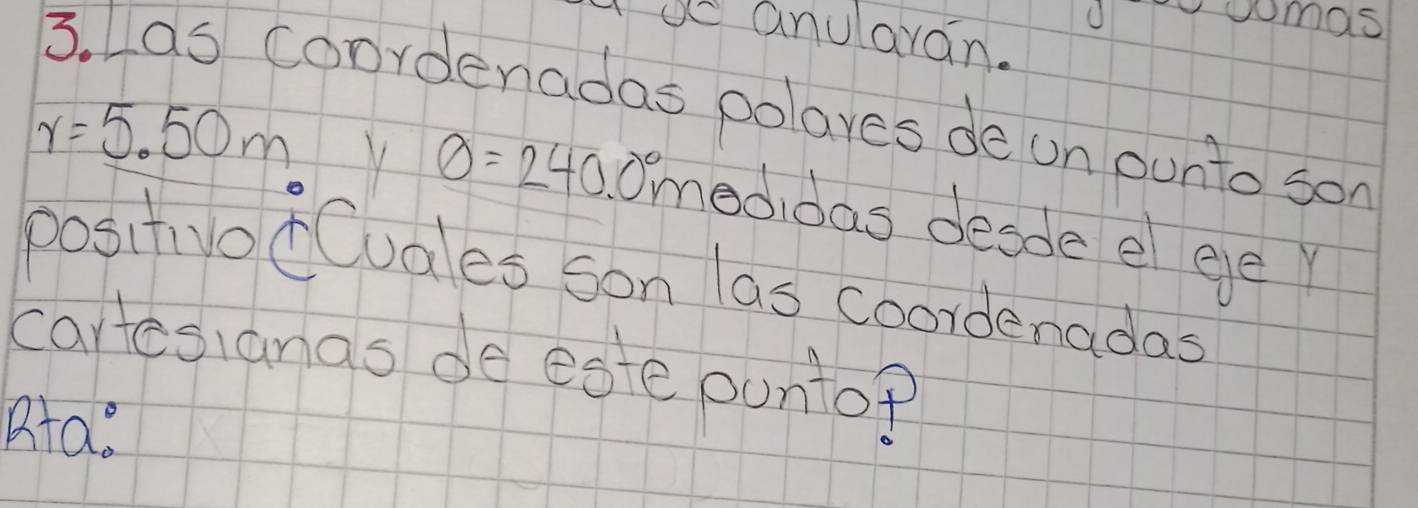 se anularán.
3. Las coordenadas polares de un punto son
r=5.50m y θ=240.0° medidas desde el eje y
positivo ¿Cuales son las coordenadas
cartesianas de este punto?
Rta: